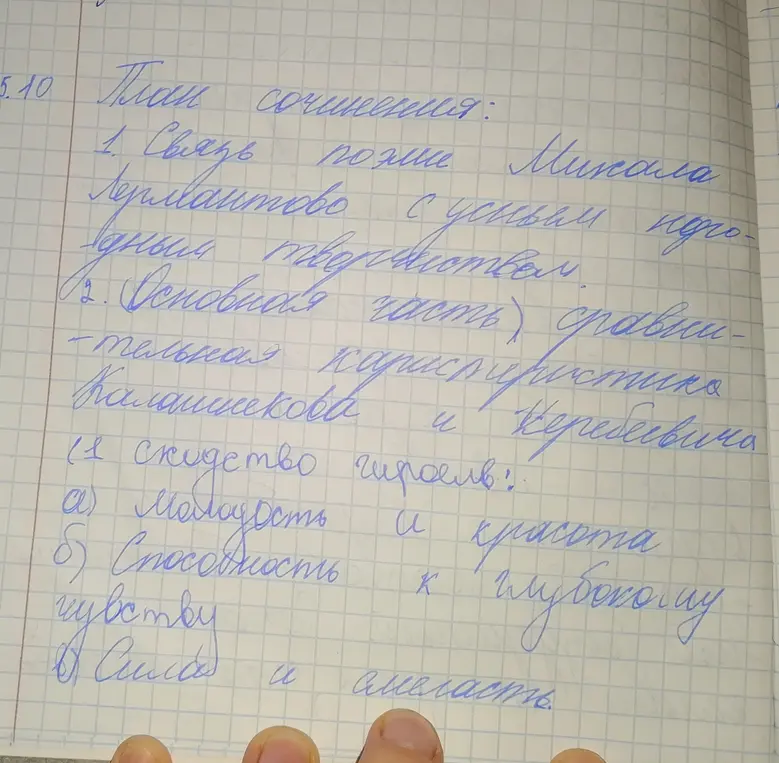 5.10 План сочинения:
1. Связь поэме Микала
Лермантово с усным наро-
-дным творчеством.
2. (Основная часть) сравни-
-тельная кариспиристика
Калашикова и Керебеевича
(1 сходство гироелв:
а) Молодость и красота
б) Способность к глубокому
чувству
в) Сила и смеласть.